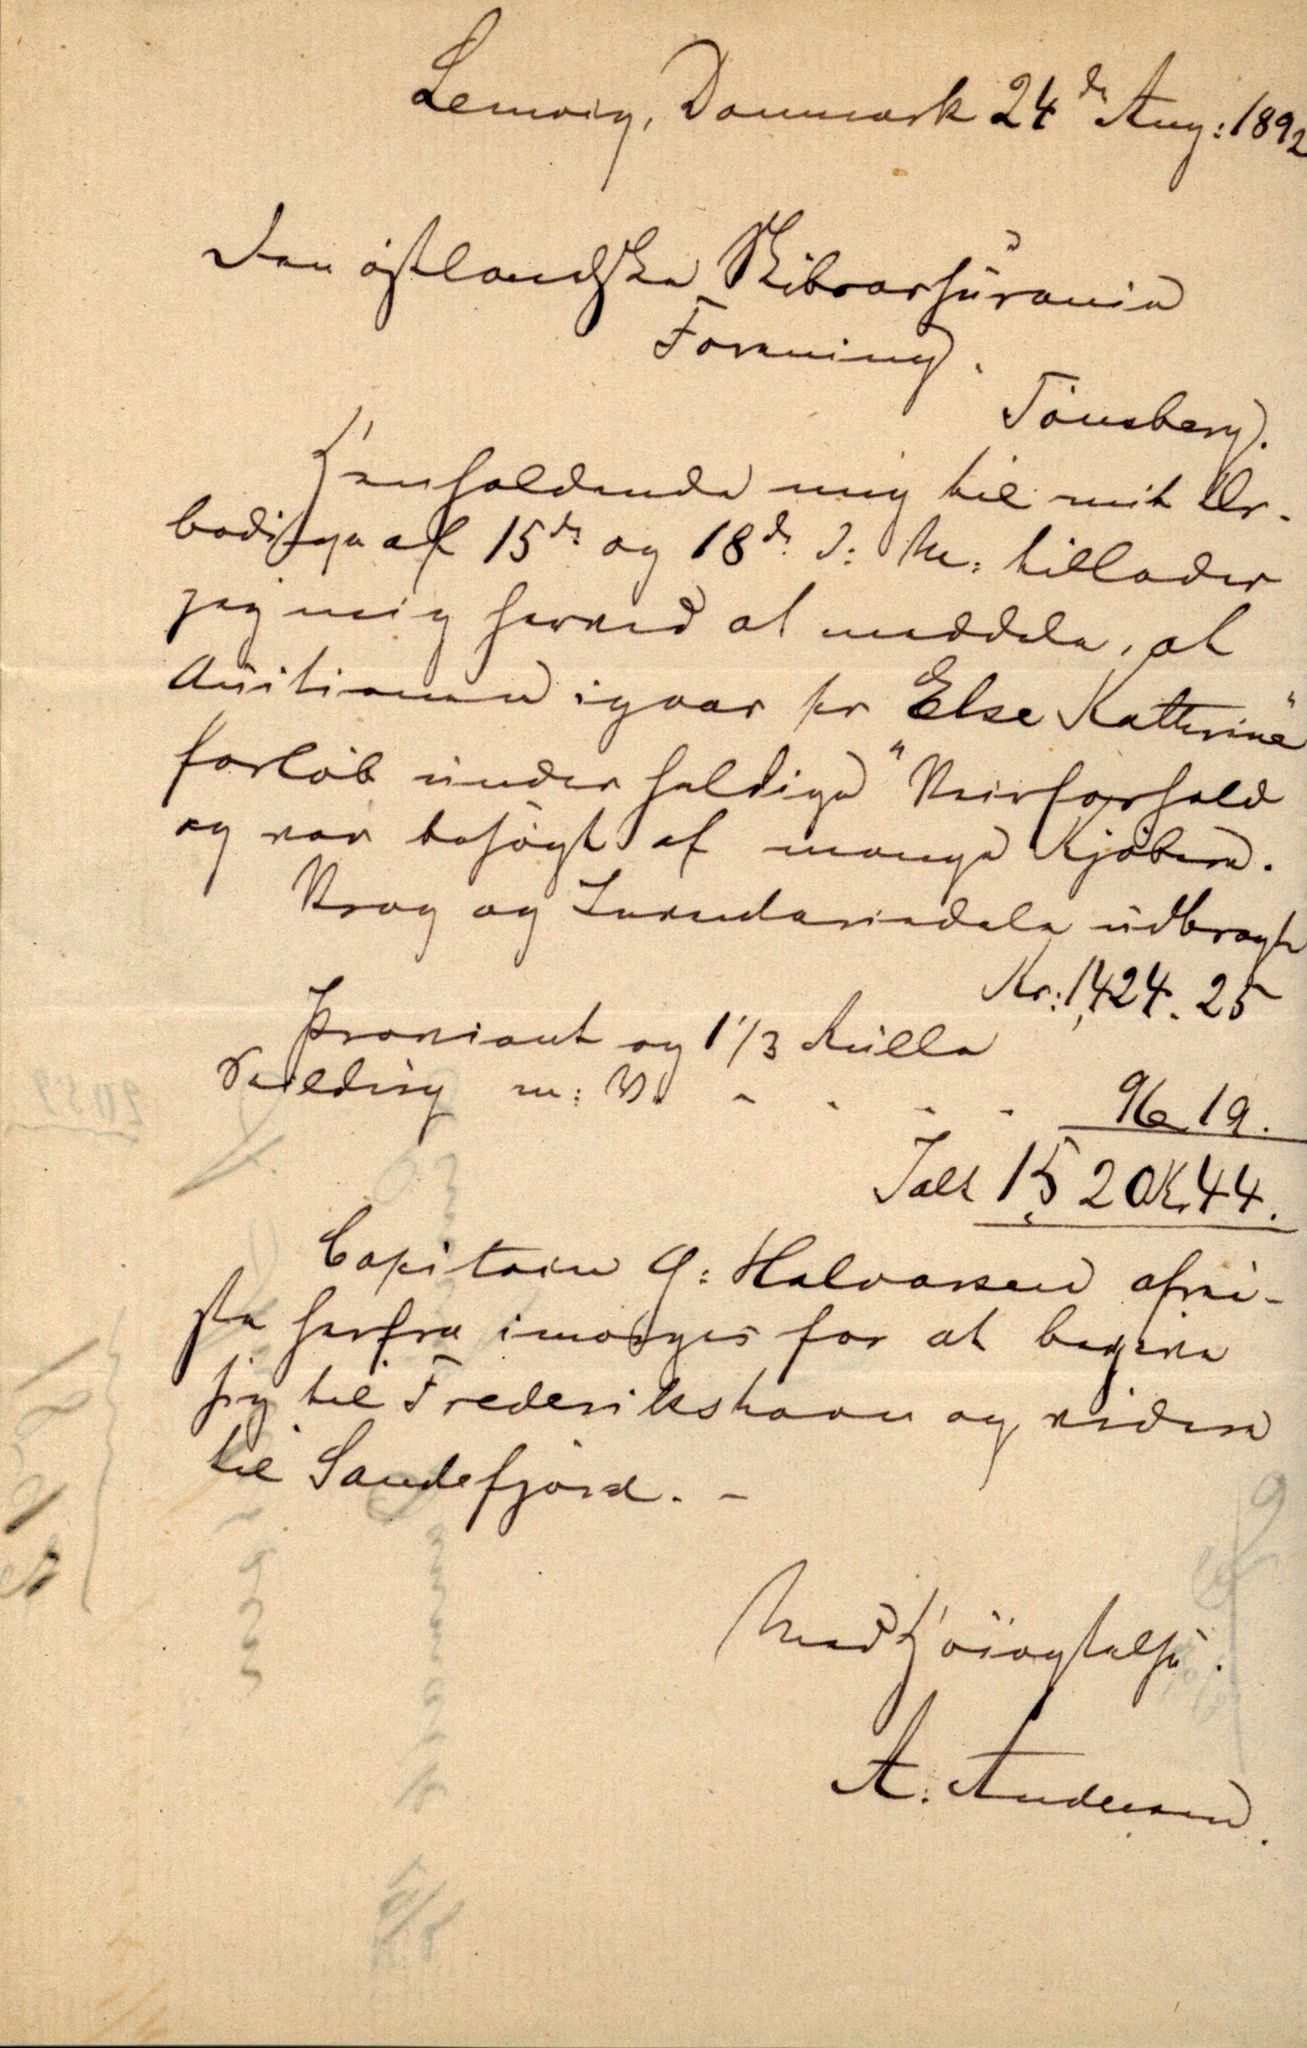 Lemvig, Danmark 24de Aug: 1892
Den østlandske Skibsassürance
Forening.
Tönsberg.
Henholdende mig til mit Ær-
bödige af 15de og 18de d: M: tillader
jeg mig herved at meddele, at
Auctionen igaar pr Else Kathrine"
forløb under heldige "Veirforhold
og var besøgt af mange Kjøbere.
Vrag og Inventariedele udbragte
Kr: 1,424. 25
Proviant og 1 1/3 Külle
Seilding m: V. - - - - 96 19.
Ialt 1520 K. 44.
Capitain G: Halvorsen afrei-
ste herfra imorges for at begive
sig til Frederikshavn og videre
til Sandefjord. -
Med Höiagtelse.
A. Andersen.